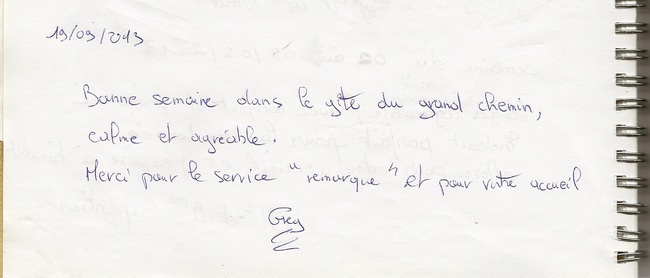 19/09/2013
Bonne semaine dans le gîte du grand chemin,
calme et agréable.
Merci pour le service "remarque" et pour votre accueil
Greg